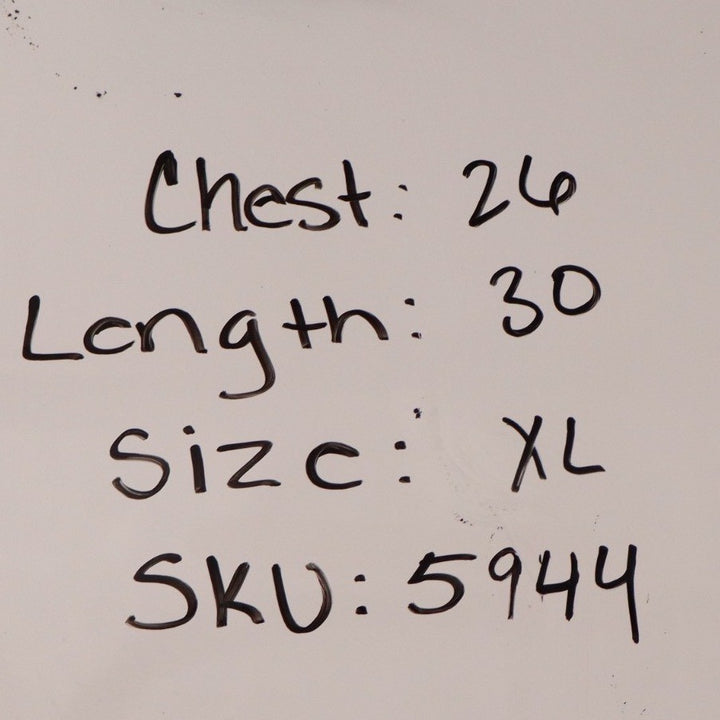 Chest: 26
Length: 30
Size: XL
SKU: 5944